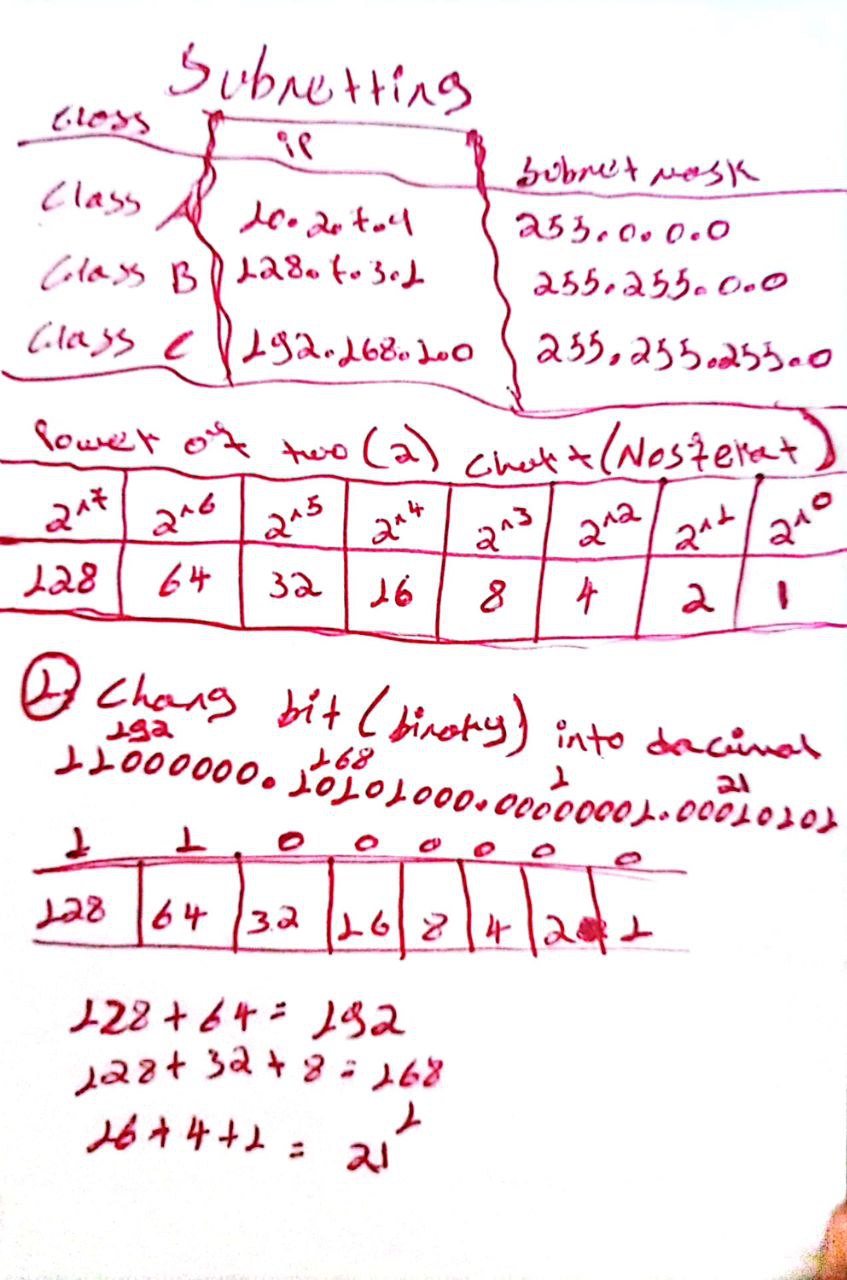 Subnetting
Class ip Subnet mask
Class A 10.2.7.4 255.0.0.0
Class B 128.7.3.1 255.255.0.0
Class C 192.168.1.0 255.255.255.0
Power of two (2) chart (Nosferat)
2^7 2^6 2^5 2^4 2^3 2^2 2^1 2^0
128 64 32 16 8 4 2 1
1 Chang bit (binary) into dacimal
192 168 1 21
11000000.10101000.00000001.00010101
1 1 0 0 0 0 0 0
128 64 32 16 8 4 2 1
128 + 64 = 192
128 + 32 + 8 = 168
1
16 + 4 + 1 = 21